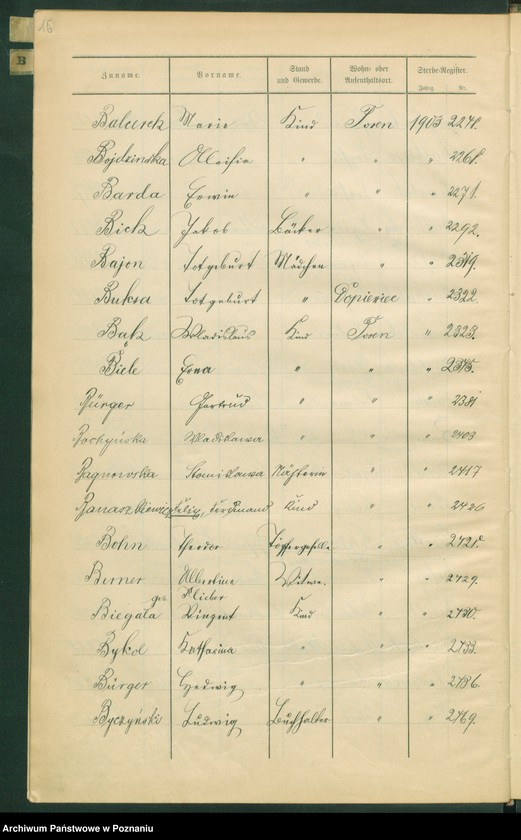 16
B
Zuname. Vorname. Stand und Gewerbe. Wohn- oder Aufenthaltsort. Sterbe-Register. Jahrg. Nr.
Balcerek Marie Kind Posen 1903 2248.
Bojdzinska " " " 2268.
Barda Erwin " " " 2271.
Bick Jakob Bäcker " " 2292.
Bajon Totgeburt Mädchen " " 2319.
Buksa Totgeburt " " 2322.
Bąk Wladislaus Kind Posen " 2323.
Biele Erna " " " 2375.
Bürger Gertrud " " " 2381
Bochyńska Wladislawa " " " 2403
Bagnowska Stanislawa Näherin " " 2417
Banaszkiewicz Felix, Ferdinand Kind " " 2426
Bohn Theodor Töpfergeselle " " 2428.
Berner Albertine Witwe. " " 2429.
geb.
Biegała Vinzent Kind " " 2730.
Bykol Katharina " " " 2733.
Bürger Hedwig " " " 2786.
Byczyński Ludwig Buchhalter " " 2769.
Archiwum Państwowe w Poznaniu